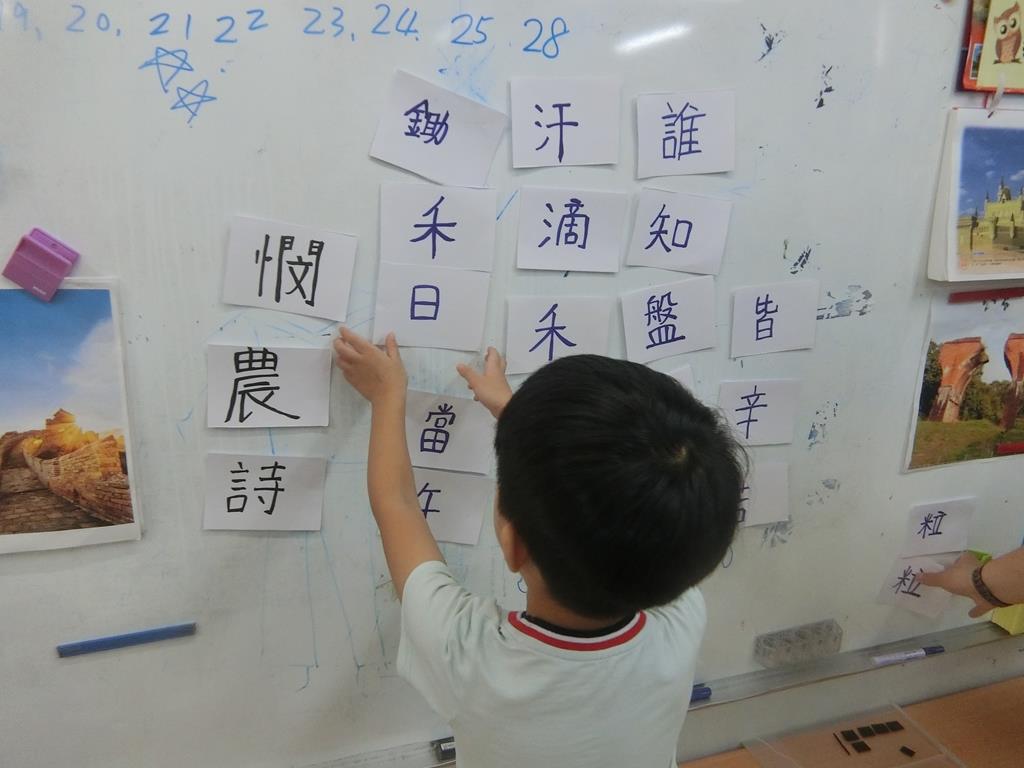 9, 20, 21 22 23, 24. 25 28
憫農詩
鋤禾日當午
汗滴禾
誰知盤
皆辛
粒粒